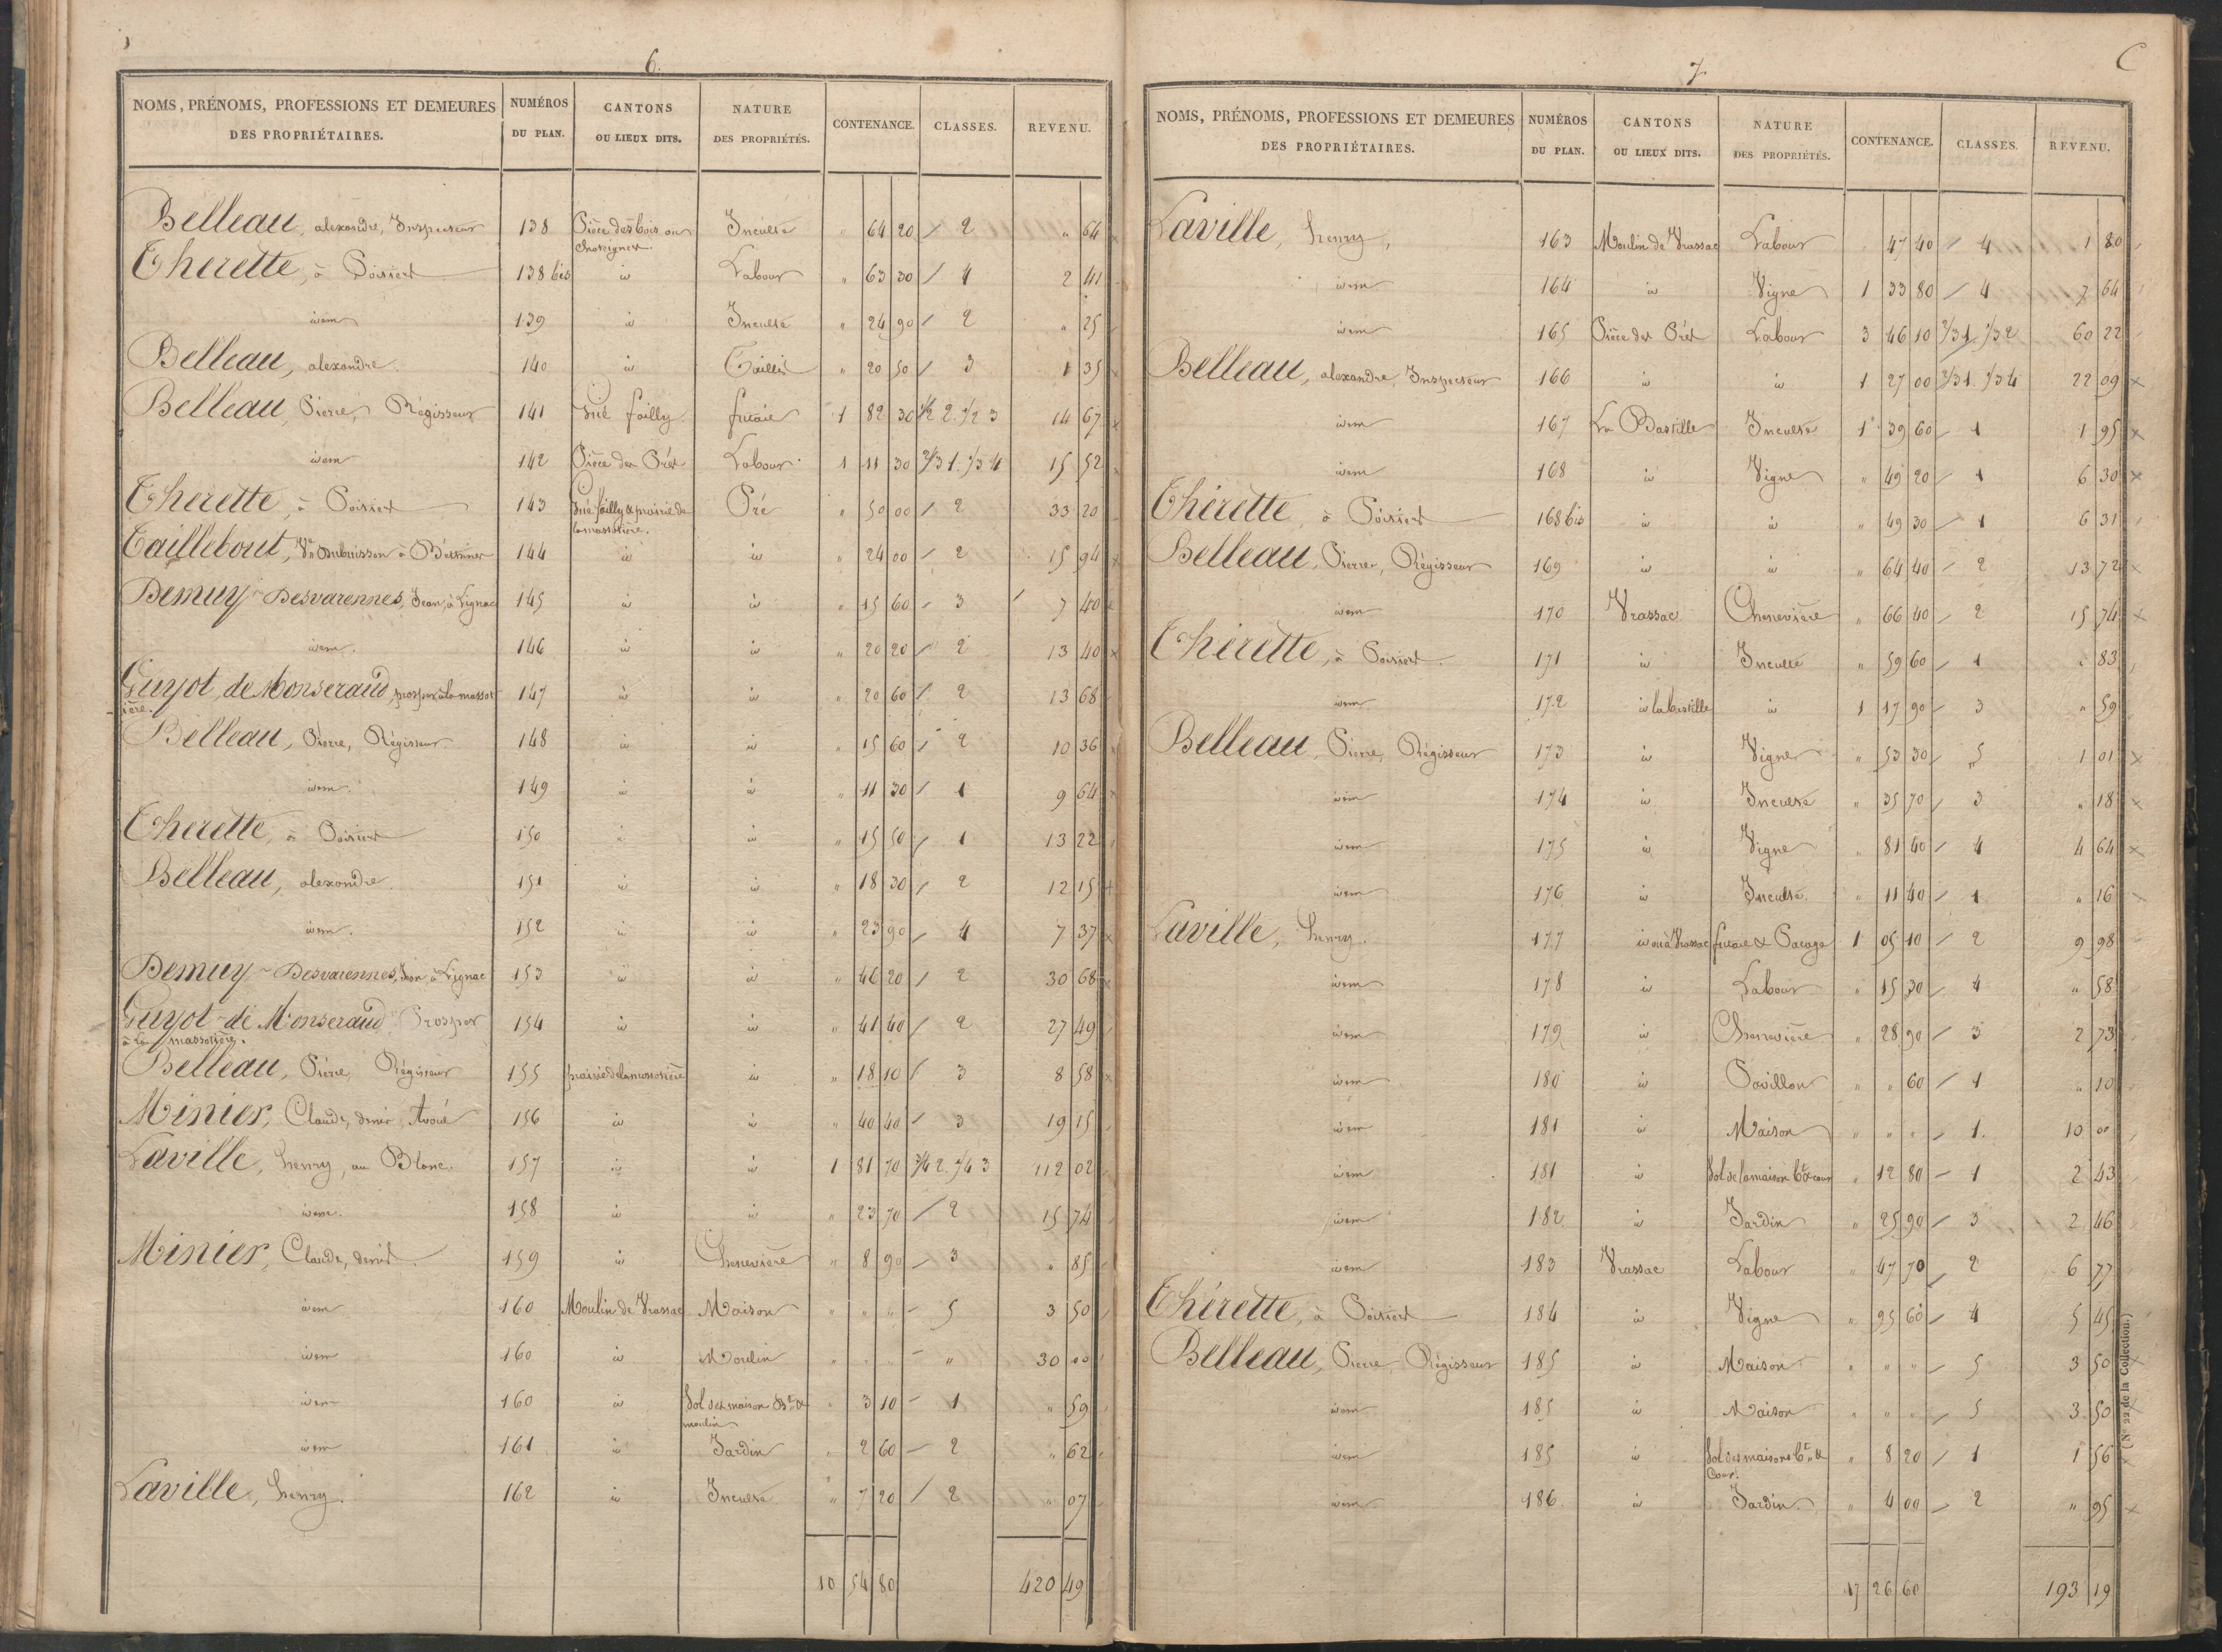 6.
NOMS, PRÉNOMS, PROFESSIONS ET DEMEURES DES PROPRIÉTAIRES. NUMÉROS DU PLAN. CANTONS OU LIEUX DITS. NATURE DES PROPRIÉTÉS. CONTENANCE. CLASSES. REVENU.
Belleau, alexandre, Inspecteur 138 Pièce des bois ou Inculte " 64 20 / 2 " 64
Therette, à Poitiers 138 bis id Labour " 63 30 / 4 2 41
idem 139 id Inculte " 24 90 / 2 " 25
Belleau, alexandre. 140 id Taillis " 20 50 / 3 1 35
Belleau, Pierre, Régisseur 141 failly futaie 1 82 30 1/2 2. 1/2 3 14 67
idem 142 Pièce des Prés Labour 1 11 30 2/3 1. 1/3 4 15 52
Therette, à Poitiers 143 failly & prairie de la massotière. Pré " 50 00 / 2 33 20
Taillebout, Ve Dubuisson à 144 id id " 24 00 / 2 15 94
Demuy-Desvarennes, Jean, à Lignac 145 id id " 15 60 / 3 7 40
idem. 146 id id " 20 20 / 2 13 40
Guyot, de Monseraud, prosper, à la massotière. 147 id id " 20 60 / 2 13 68
Belleau, Pierre, Régisseur 148 id id " 15 60 / 2 10 36
idem. 149 id id " 11 30 / 1 9 64
Therette, à Poitiers 150 id id " 15 50 / 1 13 22
Belleau, alexandre. 151 id id " 18 30 / 2 12 15
idem. 152 id id " 23 90 / 4 7 37
Demuy-Desvarennes, Jean à Lignac 153 id id " 46 20 / 2 30 68
Guyot-de Monseraud Prosper à la massotière. 154 id id " 41 40 / 2 27 49
Belleau, Pierre, Régisseur 155 prairie de la massotière id " 18 10 / 3 8 58
Minier, Claude, denis, Avoué 156 id id " 40 40 / 3 19 15
Laville, henry, au Blanc. 157 id id 1 81 70 3/4 2. 1/4 3 112 02
idem. 158 id id " 23 70 / 2 15 74
Minier, Claude, denis. 159 id Chenevière " 8 90 - 3 " 85
idem 160 Moulin de Vrassac Maison " " " - 5 3 50
idem 160 id Moulin " " " - " 30 00
idem 160 id Sol des maison Bt. & moulin " 3 10 - 1 " 59
idem 161 id Jardin " 2 60 - 2 " 62
Laville, henry. 162 id Inculte " 7 20 / 2 " 07
10 54 80 420 49
7
C
NOMS, PRÉNOMS, PROFESSIONS ET DEMEURES DES PROPRIÉTAIRES. NUMÉROS DU PLAN. CANTONS OU LIEUX DITS. NATURE DES PROPRIÉTÉS. CONTENANCE. CLASSES. REVENU.
Laville, henry, 163 Moulin de Vrassac Labour 47 40 / 4 1 80
idem 164 id Vigne 1 33 80 / 4 7 64
idem 165 Pièce des Prés Labour 3 46 10 2/3 1. 1/3 2 60 22
Belleau, alexandre, Inspecteur 166 id id 1 27 00 2/3 1. 1/3 4 22 09
idem 167 La Bastille Inculte 1 39 60 - 1 1 95
idem 168 id Vigne " 49 20 / 1 6 30
Thérette, à Poitiers 168 bis id id " 49 30 - 1 6 31
Belleau, Pierre, Régisseur 169 id id " 64 40 - 2 13 72
idem 170 Vrassac Chenevière " 66 40 - 2 15 74
Thérette, à Poitiers. 171 id Inculte " 59 60 / 1 " 83
idem 172 id labastille id 1 17 90 - 3 " 59
Belleau, Pierre, Régisseur 173 id Vigne " 53 30 / 5 1 01
idem 174 id Inculte " 35 70 / 3 " 18
idem 175 id Vigne " 81 40 / 4 4 64
idem 176 id Inculte. " 11 40 / 1 " 16
Laville, henry. 177 id ou à Vrassac futaie & Pacage 1 05 10 - 2 9 98
idem 178 id Labour " 15 30 / 4 " 58
idem 179 id Chenevière " 28 90 / 3 2 73
idem 180 id Pavillon " " 60 / 1 " 10
idem 181 id Maison " " " / 1. 10 00
idem 181 id Sol de la maison bt & cour " 12 80 - 1 2 43
idem 182 id Jardin " 25 90 / 3 2 46
idem 183 Vrassac Labour " 47 70 / 2 6 77
Thérette, à Poitiers 184 id Vigne " 95 60 - 4 5 45
Belleau, Pierre, Régisseur 185 id Maison " " " / 5 3 50
idem 185 id Maison " " " / 5 3 50
idem 185 id Sol des maisons bt. & Cour. " 8 20 / 1 1 56
idem 186 id Jardin. " 4 00 - 2 " 95
17 26 60 193 19
(N° 22 de la Collection.)